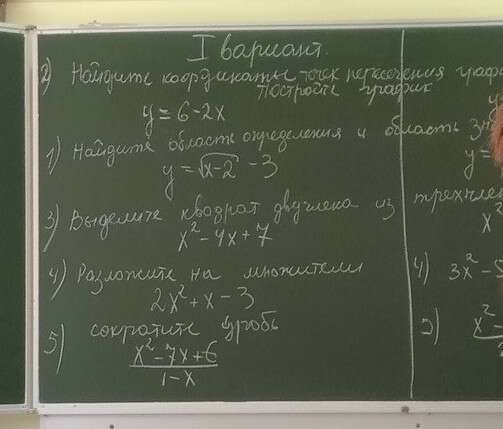 I вариант.
2) Найдите координаты точек пересечения граф
Постройте график
y = 6 - 2x
1) Найдите область определения и область зн
y = √x-2 - 3
3) Выделите квадрат двучлена из трехчле
x² - 4x + 7
4) Разложите на множители
2x² + x - 3
5) сократите дробь
x² - 7x + 6
1 - x
y =
x²
4) 3x² - 5
5) x² -